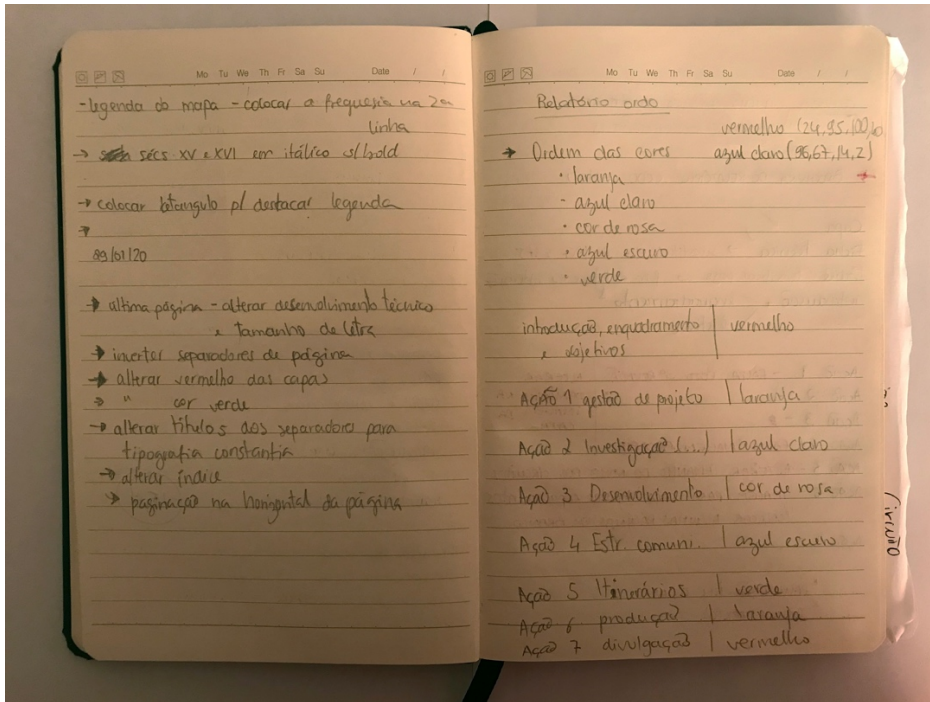 Mo Tu We Th Fr Sa Su Date / /
- legenda do mapa - colocar a freguesia na 2a
linha
→ sécs XV e XVI em itálico s/ bold
→ colocar retangulo p/ destacar legenda
→
09/01/20
→ ultima página - alterar desenvolvimento técnico
e tamanho de letra
→ insertar separadores de página
→ alterar vermelho das capas
→ " cor verde
→ alterar títulos dos separadores para
tipografia constantia
→ alterar índice
→ paginação na horizontal da página
Mo Tu We Th Fr Sa Su Date / /
Relatório ordo
vermelho (24,95,100,10
→ Ordem das cores azul claro (96,67,14,2)
· laranja
- azul claro
· cor de rosa
· azul escuro
· verde
introdução, enquadramento | vermelho
e objetivos
Ação 1 gestão de projeto | laranja
Ação 2 Investigação (...) | azul claro
Ação 3 Desenvolvimento | cor de rosa
Ação 4 Estr. comuni. | azul escuro
Ação 5 Itinerários | verde
Ação 6 produção | laranja
Ação 7 divulgação | vermelho